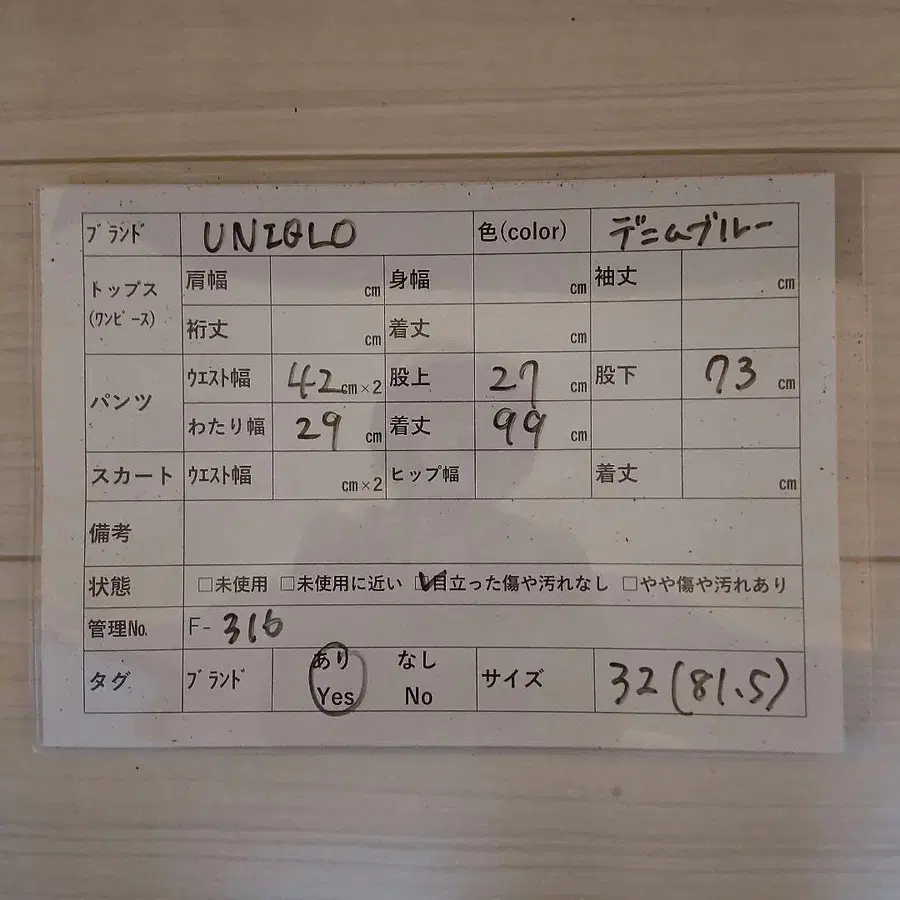 ブランド UNIQLO 色(color) デニムブルー
トップス 肩幅 cm 身幅 cm 袖丈 cm
(ワンピース) 裄丈 cm 着丈 cm
パンツ ウエスト幅 42cm×2 股上 27 cm 股下 73 cm
わたり幅 29 cm 着丈 99 cm
スカート ウエスト幅 cm×2 ヒップ幅 着丈 cm
備考
状態 □未使用 □未使用に近い ☑目立った傷や汚れなし □やや傷や汚れあり
管理No. F-316
タグ ブランド あり Yes なし No サイズ 32(81.5)